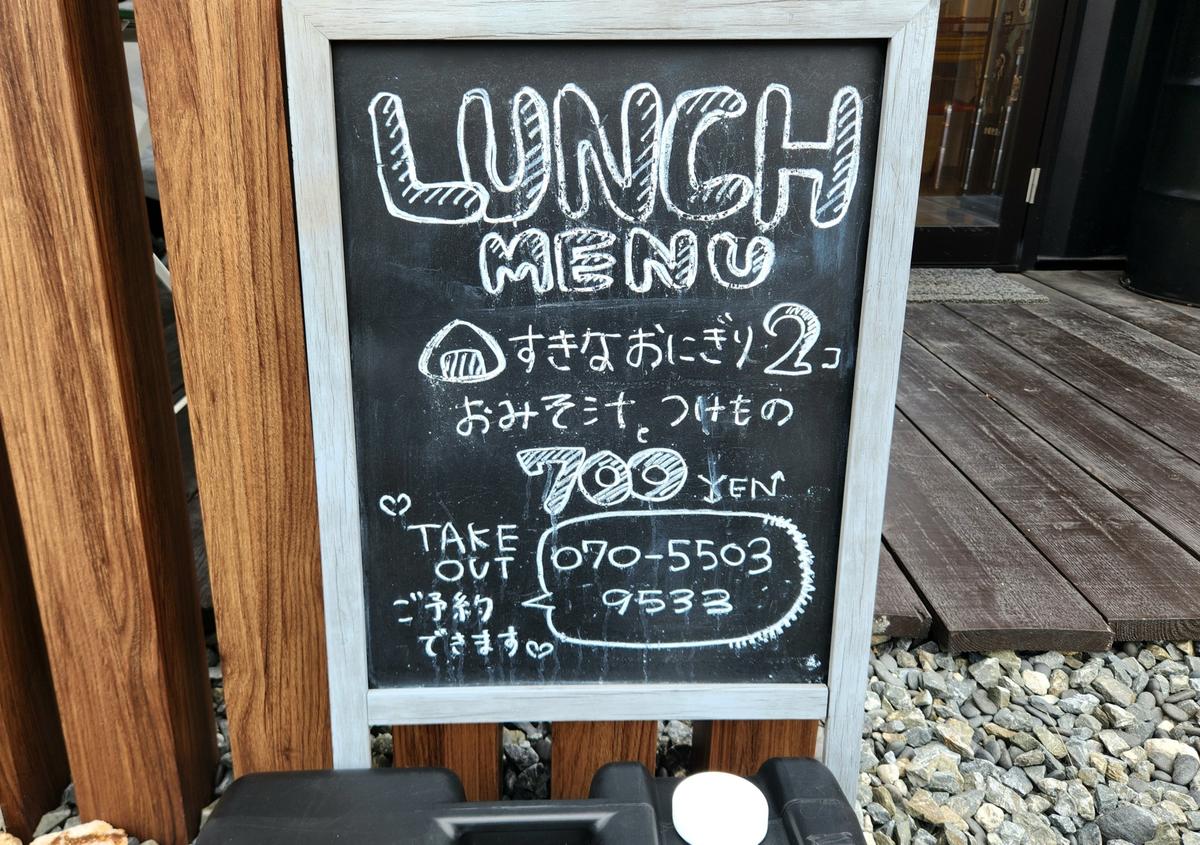 LUNCH
MENU
すきなおにぎり2コ
おみそ汁とつけもの
700 YEN
TAKE
OUT
ご予約
できます
070-5503
9533